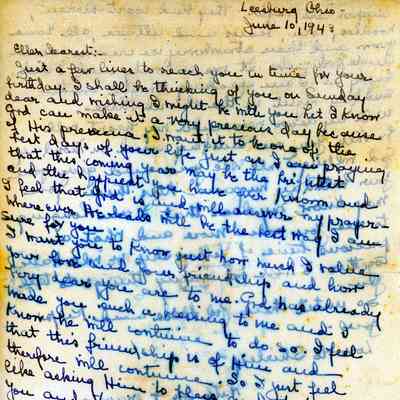 Leesburg Ohio -
June 10, 1943
Ellen Dearest:-
Just a few lines to reach you in time for your
birthday. I shall be thinking of you on Sunday
dear and wishing I might be with you but I know
God can make it a very precious day because
of His presence. I want it to be one of the
best days of your life just as I am praying
that this coming year may be the brightest
and the happiest you have ever known and
I feel that God is and will answer my prayer -
wherever He leads will be the best way I am
sure for you.
I want you to know just how much I value
your love and your friendship and how
very dear you are to me. God has already
made you such a blessing to me and I
know He will continue to do so. I feel
that this friendship is of Him and
therefore will continue. So I just feel
like asking Him to bless
you and